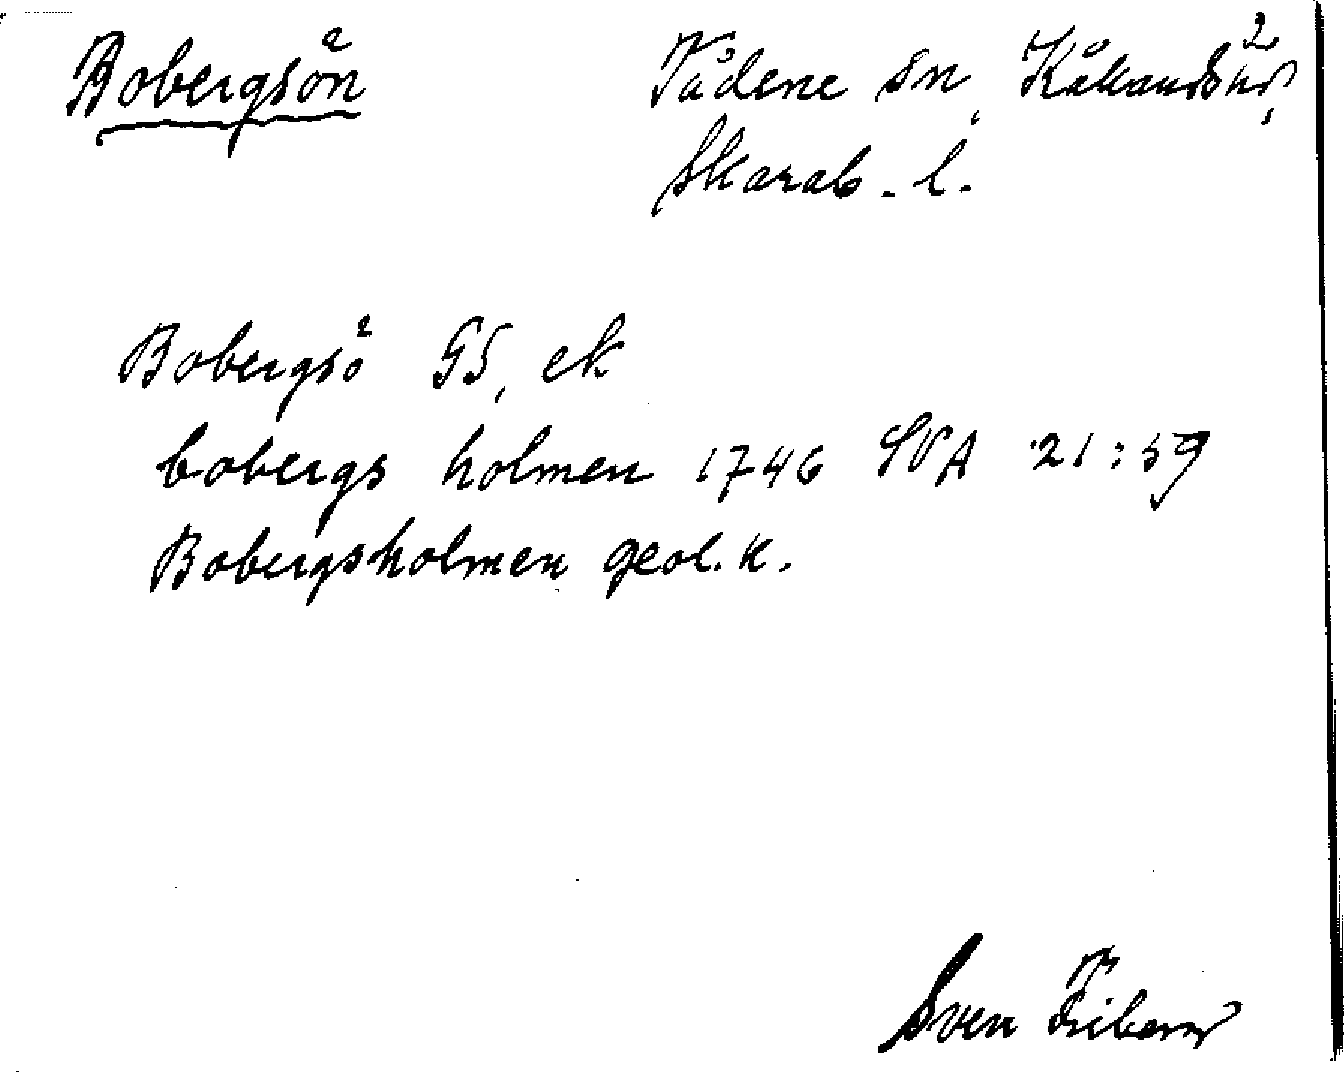 Bobergsön
Tådene sn, Kållands hd,
Skarab. l.
Bobergsö GS, ek
bobergs holmen 1746 LVA 21:59
Bobergsholmen geol. k.
Sven Friberg